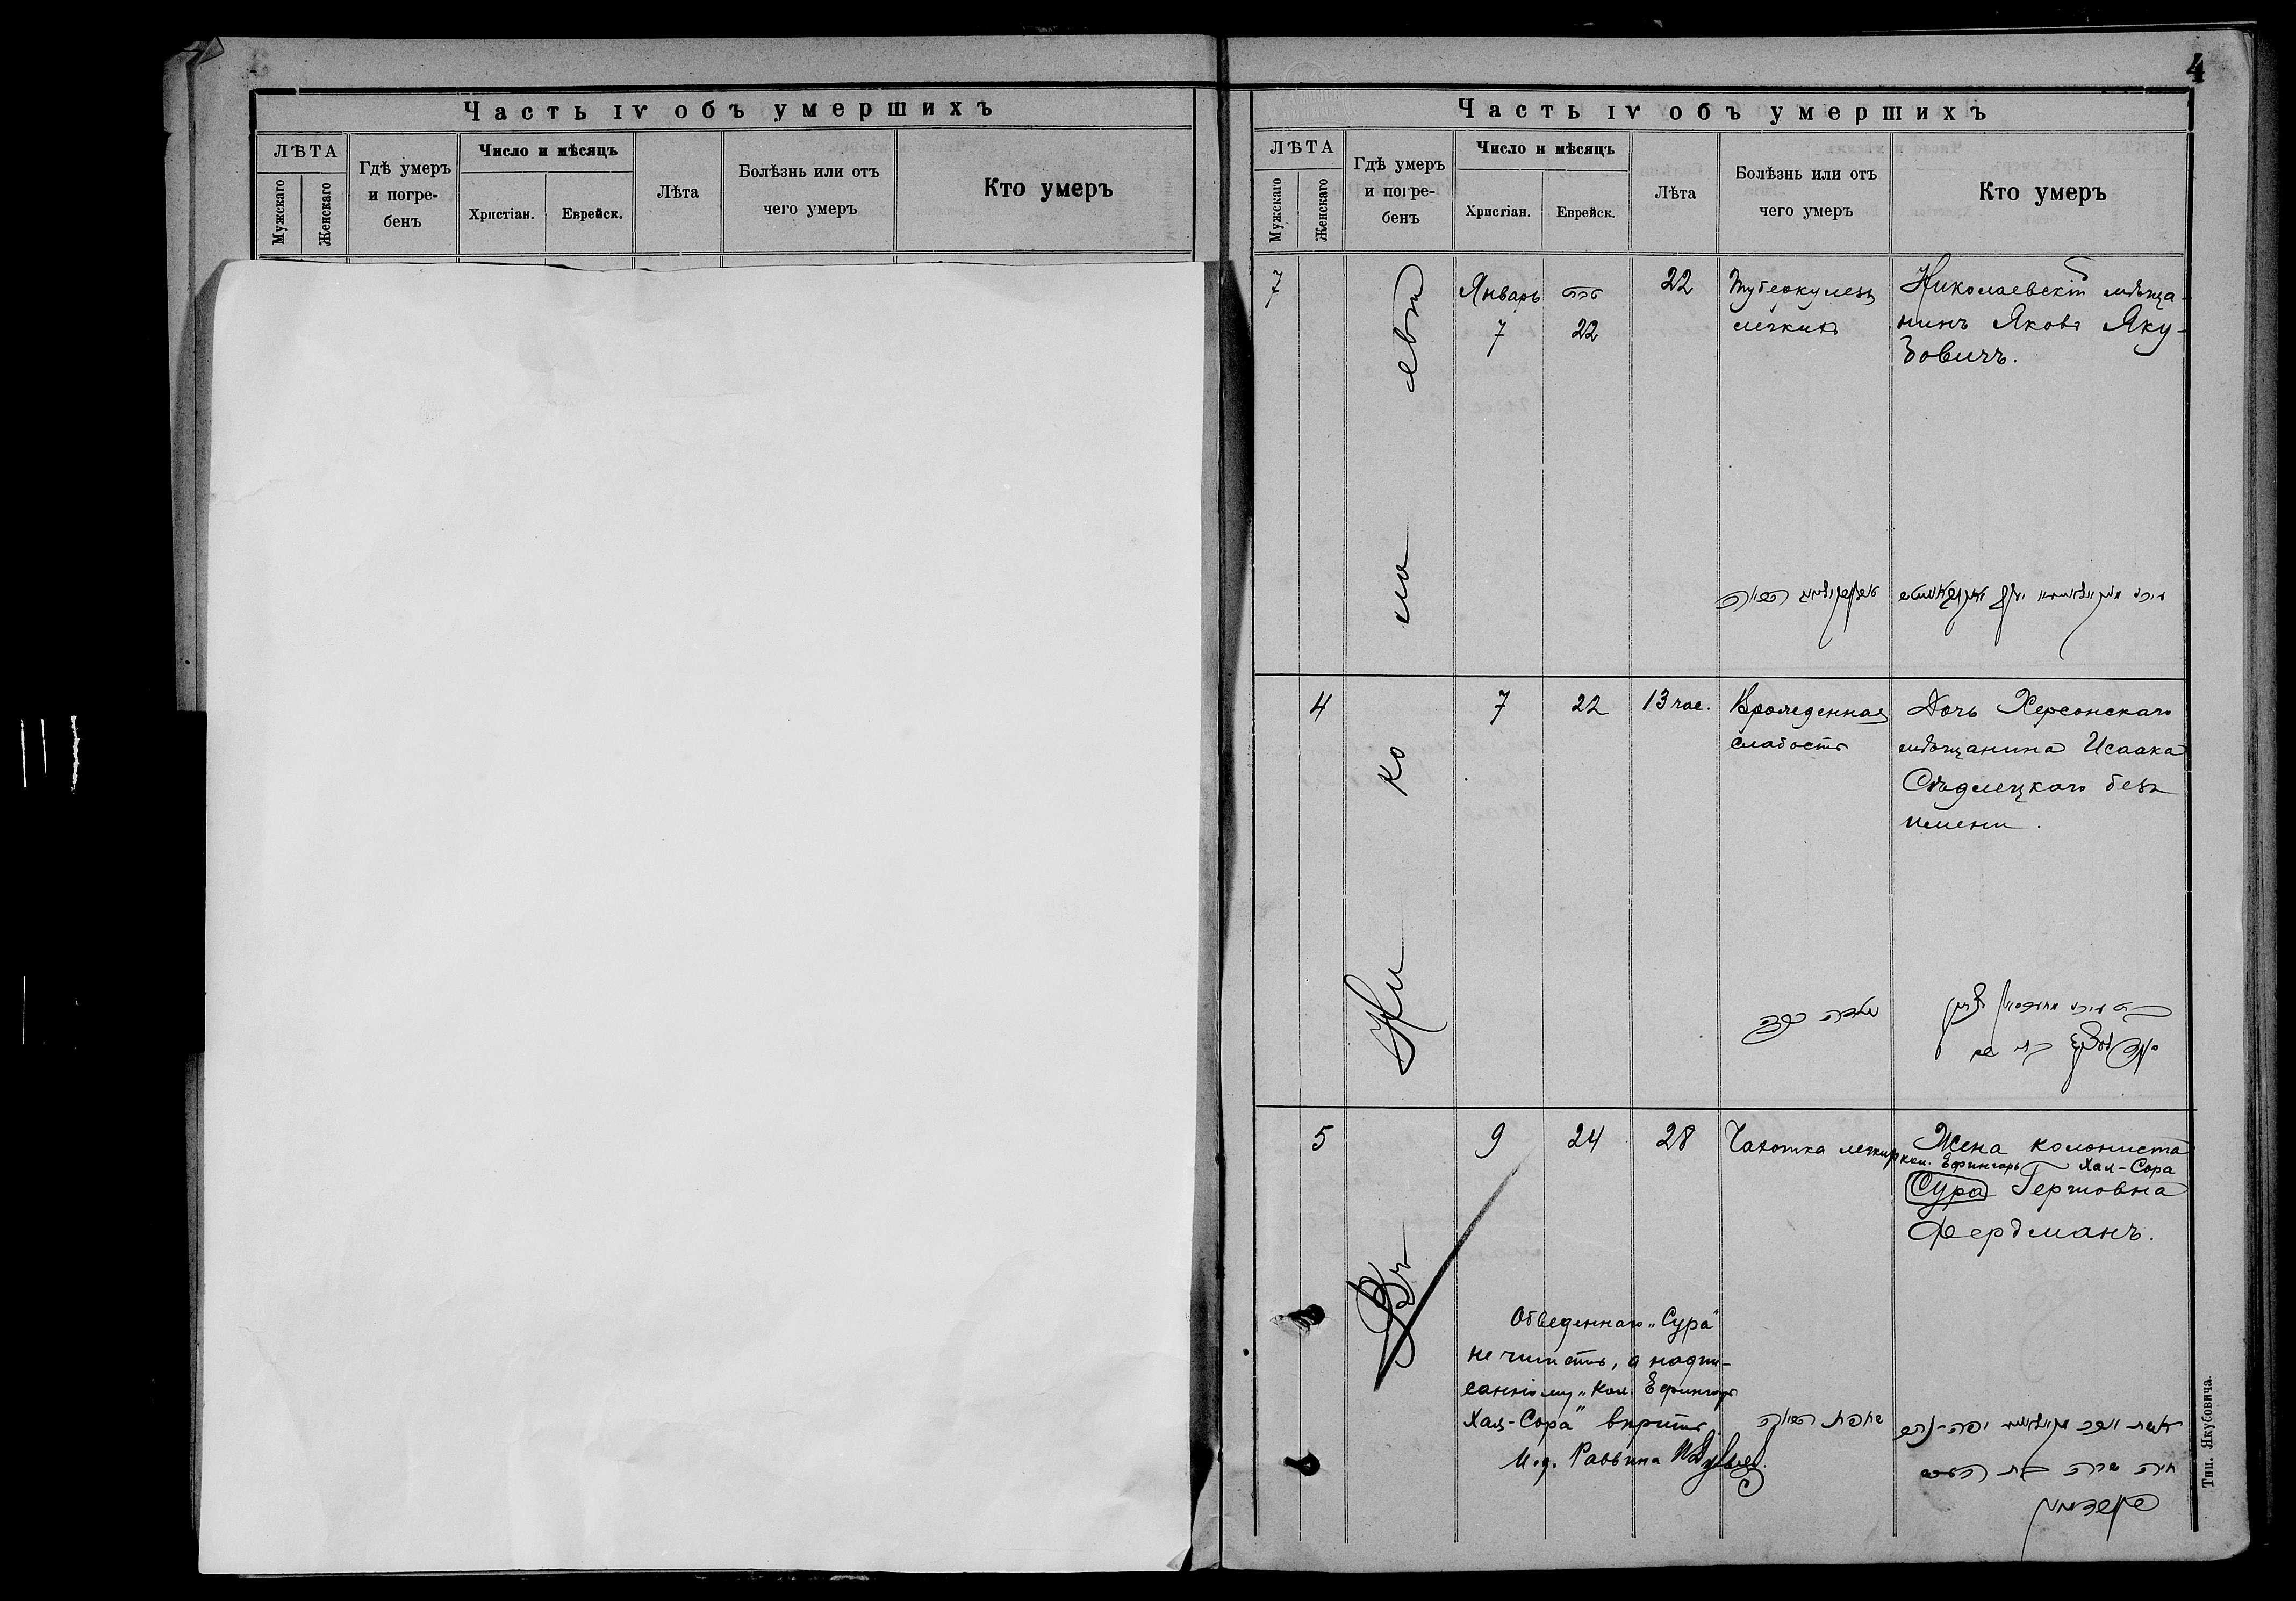 4
Часть IV объ умершихъ
ЛѢТА
Мужскаго
Женскаго
Гдѣ умеръ
и погре-
бенъ
Число и мѣсяцъ
Христіан.
Еврейск.
Лѣта
Болѣзнь или отъ
чего умеръ
Кто умеръ
Часть IV объ умершихъ
ЛѢТА
Мужскаго
Женскаго
Гдѣ умеръ
и погре-
бенъ
Число и мѣсяцъ
Христіан.
Еврейск.
Лѣта
Болѣзнь или отъ
чего умеръ
Кто умеръ
Въ Николаевѣ
7
Январь
7
טבת
22
22
Туберкулезъ
легкихъ
Николаевскій мѣща-
нинъ Яковъ Яку-
бовичъ.
4
7
22
13 час.
Врожденная
слабость
Дочь Херсонскаго
мѣщанина Исаака
Сѣдлецкаго безъ
имени.
5
9
24
28
Чахотка легкихъ
Жена колониста
кол. Ефингаръ Хая-Сора
Сура Гершовна
Фердманъ.
Обведеннаго „Сура"
не читать, а надпи-
санному „кол. Ефингаръ
Хая-Сора" вѣрить
И. д. Раввина
שחפת הריאה
חיה שרה בת הירש
פערדמאן
Тип. Якубовича.